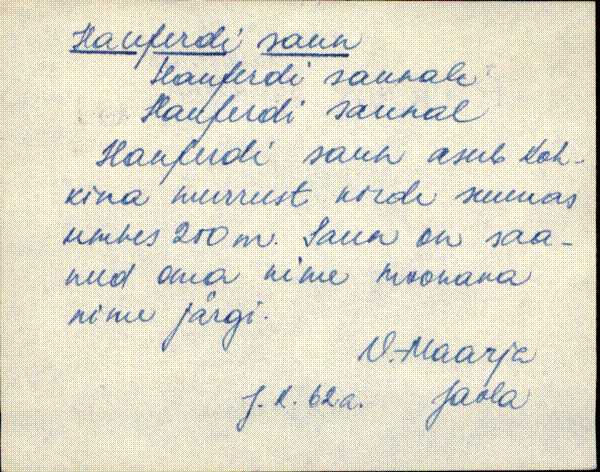 Hanferdi saun
Hanferdi saunale
Hanferdi saunal
Hanferdi saun asub Koh-
kina nurrust kirde suunas
umbes 200 m. Saun on saa-
nud oma nime moonaka
nime järgi.
V.-Maarja
J. K. 62a. Jaola